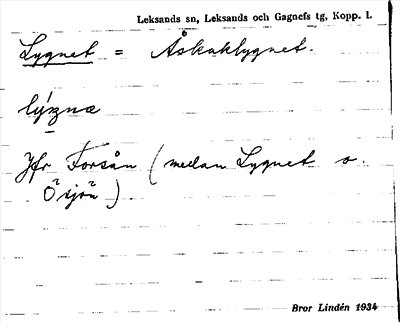 Leksands sn, Leksands och Gagnefs tg, Kopp. l.
Lygnet = Åskaklygnet.
lýzna
Jfr Forsån (medan Lygnet o.
Ösjön)
Bror Lindén 1934